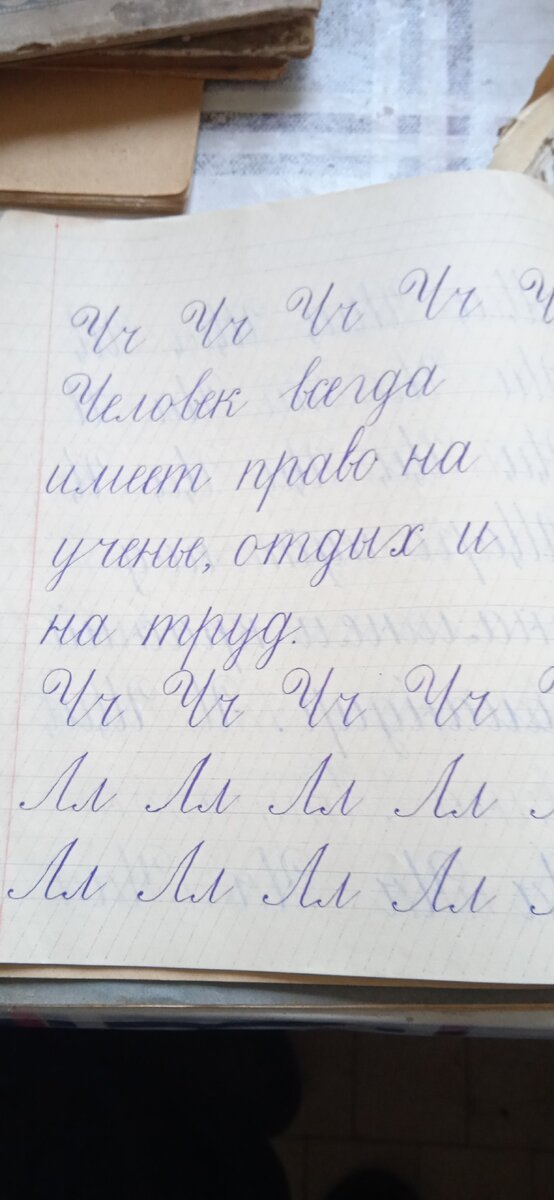 Чч Чч Чч Чч Ч
Человек всегда
имеет право на
ученье, отдых и
на труд.
Чч Чч Чч Чч
Лл Лл Лл Лл
Лл Лл Лл Лл